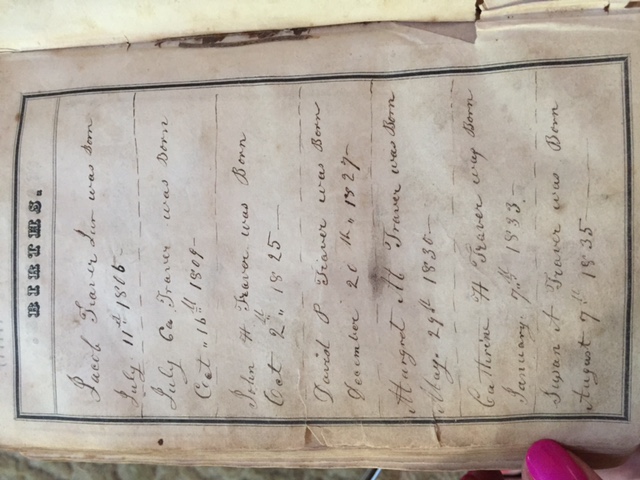 BIRTHS.
Jacob Traver was Born
July 11th 1806
July Ca Traver was Born
Oct 16th 1809
John H Traver was Born
Oct 2nd 1825
David P Traver was Born
December 20th 1827
Margret M Traver was Born
Aug. 29th 1830
Catherine H Traver was Born
January 7th 1833
Susan A Traver was Born
August 7th 1835